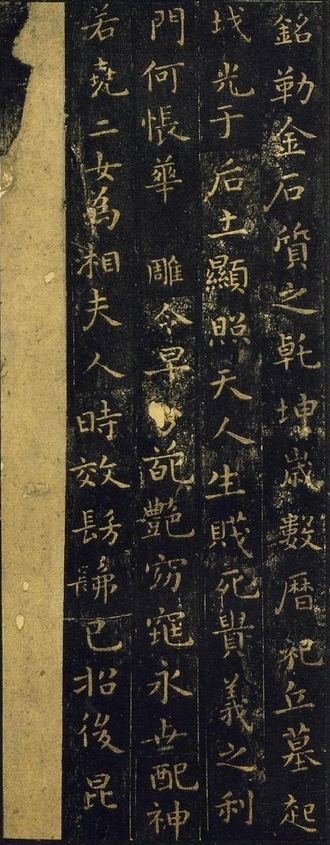 銘勒金石質之乾坤歲數曆祀丘墓起
坟光于后土顯照天人生賤死貴義之利
門何悵華雕令早分葩艷窈窕永世配神
若堯二女為相夫人時效髣髴已招後昆